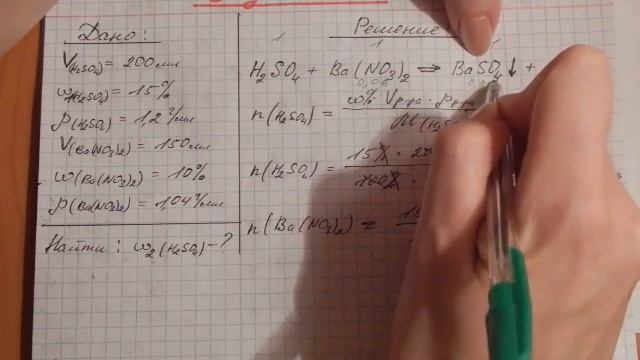 Дано:
V(H₂SO₄) = 200 мл
w(H₂SO₄) = 15%
ρ(H₂SO₄) = 1,2 г/мл
V(Ba(NO₃)₂) = 150 мл
w(Ba(NO₃)₂) = 10%
ρ(Ba(NO₃)₂) = 1,04 г/мл
Найти: w₂(H₂SO₄) - ?
Решение
1 1 1
H₂SO₄ + Ba(NO₃)₂ ⇒ BaSO₄↓ +
0,06
n(H₂SO₄) = w% · Vр-ра · ρр-ра
n(H₂SO₄) = 15% ·
100% ·
n(Ba(NO₃)₂) =